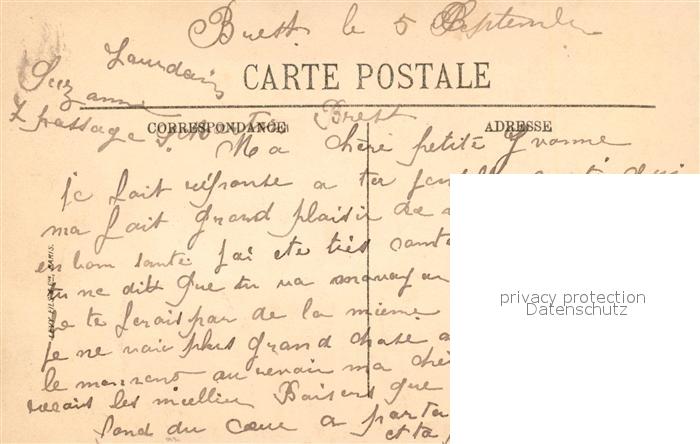 Brest le 5 Septembre
Suzanne Jourdain
7 passage
Brest
CARTE POSTALE
CORRESPONDANCE
ADRESSE
Ma chère petite Yvonne
je fait réponse a ta
ma fait grand plaisir de
en bonn santé j'ai ete très
tu me dit que tu va
je te ferais par de la mienne
je ne voie plus grand chose a
le moment au revoir ma chè
recois les meilleur Baisers que
fond du cœur a parta
et ta
PARIS.
privacy protection
Datenschutz